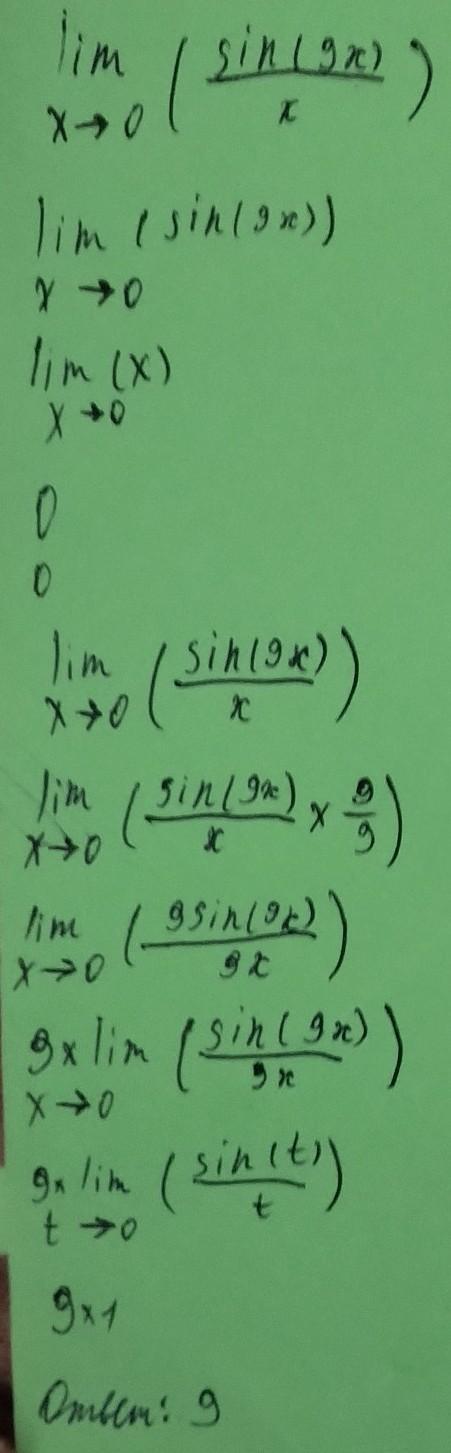 lim x→0 ( sin(9x) / x )
lim (sin(9x))
x → 0
lim (x)
x → 0
0
0
lim x→0 ( sin(9x) / x )
lim x→0 ( sin(9x) / x × 9/9 )
lim x→0 ( 9sin(9x) / 9x )
9 × lim x→0 ( sin(9x) / 9x )
9 × lim t→0 ( sin(t) / t )
9×1
Ответ: 9